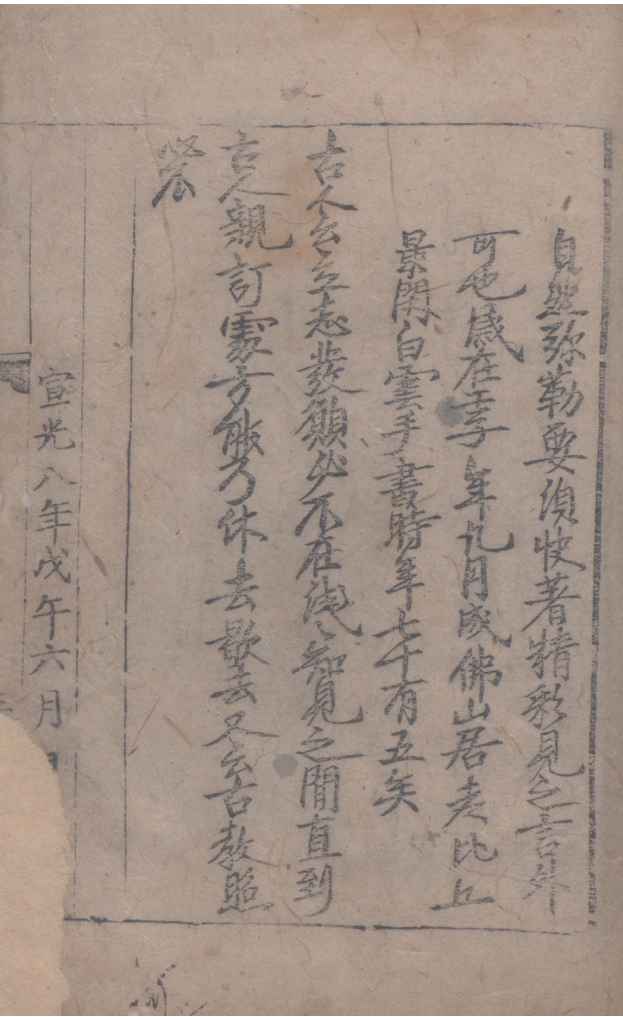 自然弥勒要須快著精彩見之言外
可也歳在壬子年九月成佛山居老比丘
景閑白雲手書時年七十有五矣
古人云立志發願必不在浅々知見之間直到
古人親訂處方儀乃休去歇去又云古教照
心
宣光八年戊午六月